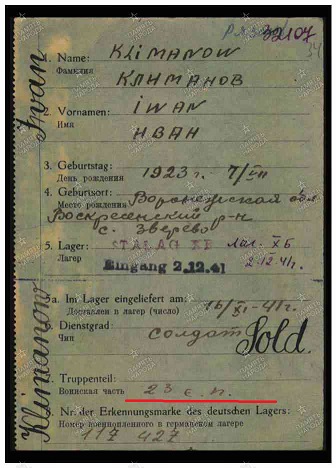 32107
1. Name: KLIMANOW
Фамилия КЛИМАНОВ
2. Vornamen: IWAN
Имя ИВАН
3. Geburtstag: 1923 г. 7/XII
День рождения
4. Geburtsort: Воронежская обл.
Место рождения
Воскресенский р-н
с. Зверево
5. Lager: STALAG XB Лаг. XБ
Лагерь Eingang 2.12.41 2.12.41г.
5a. Im Lager eingeliefert am: 16/XI-41г.
Доставлен в лагерь (число)
Dienstgrad: солдат Sold.
Чин
Truppenteil:
Воинская часть 23 с.п.
8. Nr. der Erkennungsmarke des deutschen Lagers:
Номер военнопленного в германском лагере
117 427
Klimanow Iwan